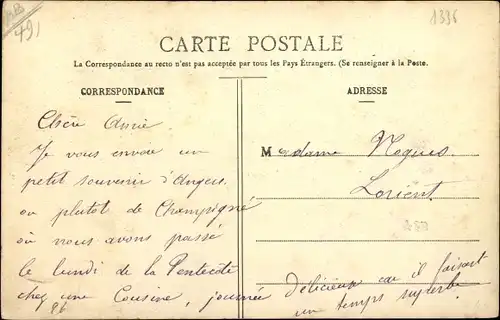 491
1336
CARTE POSTALE
La Correspondance au recto n'est pas acceptée par tous les Pays Étrangers. (Se renseigner à la Poste.
CORRESPONDANCE
ADRESSE
Chère Amie
Je vous envoie un
petit souvenir d'Angers
ou plutôt de Champigné
où nous avons passé
le lundi de la Pentecôte
chez une Cousine, journée
délicieuse car il faisait
un temps superbe.
Madame Noques
Lorient
86